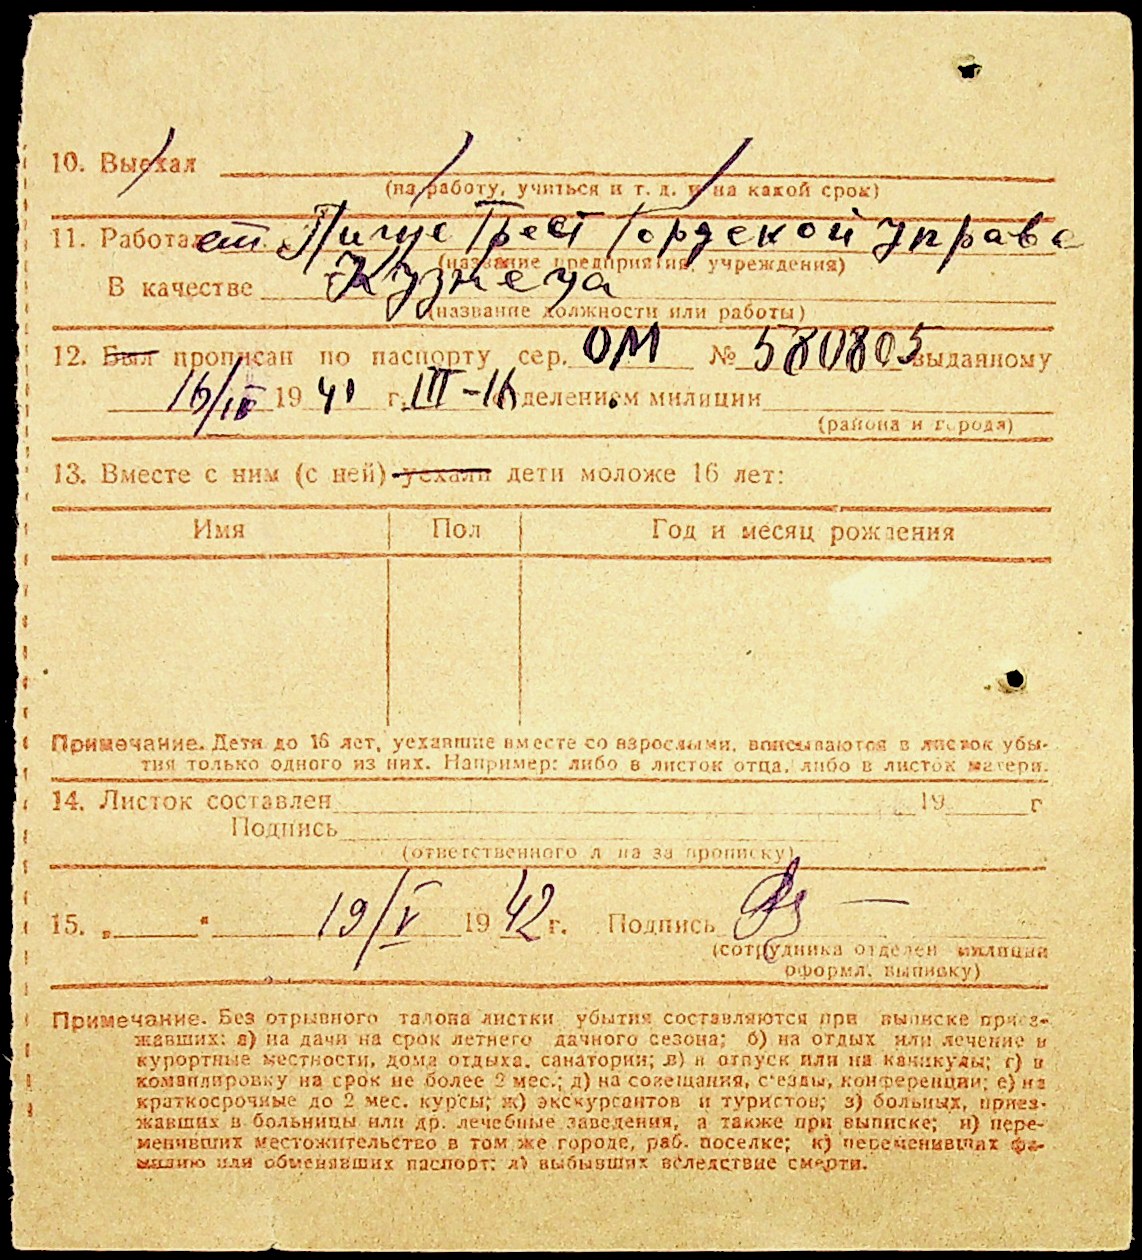 10. Выехал
(на работу, учиться и т. д. и на какой срок)
11. Работает Пище Трест Гордской управе
(название предприятия, учреждения)
В качестве Кузнеца
(название должности или работы)
12. Был прописан по паспорту сер. ОМ № 580805 выданному
16/IV 19 41 г. III-1й отделением милиции
(района и города)
13. Вместе с ним (с ней) уехали дети моложе 16 лет:
Имя Пол Год и месяц рождения
Примечание. Дети до 16 лет, уехавшие вместе со взрослыми, вписываются в листок убы-
тия только одного из них. Например: либо в листок отца, либо в листок матери.
14. Листок составлен 19 г
Подпись
(ответственного лица за прописку)
15. „ “ 19/V 19 42 г. Подпись
(сотрудника отделен милиции
оформл. выписку)
Примечание. Без отрывного талона листки убытия составляются при выписке приез-
жавших: а) на дачи на срок летнего дачного сезона; б) на отдых или лечение в
курортные местности, дома отдыха, санатории; в) в отпуск или на каникулы; г) в
командировку на срок не более 2 мес.; д) на совещания, с'езды, конференции; е) на
краткосрочные до 2 мес. курсы; ж) экскурсантов и туристов; з) больных, приез-
жавших в больницы или др. лечебные заведения, а также при выписке; и) пере-
менивших местожительство в том же городе, раб. поселке; к) переменивших фа-
милию или обменявших паспорт; л) выбывших вследствие смерти.